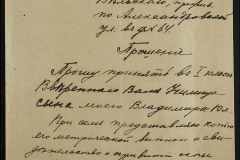 по Александровской
ул. в д № 64.
Прошение
Прошу принять во I классъ
ввѣреннаго Вамъ Училища
сына моего Владимира
При семъ представляю
его метрической выписи и сви-
дѣтельство о привитіи оспы